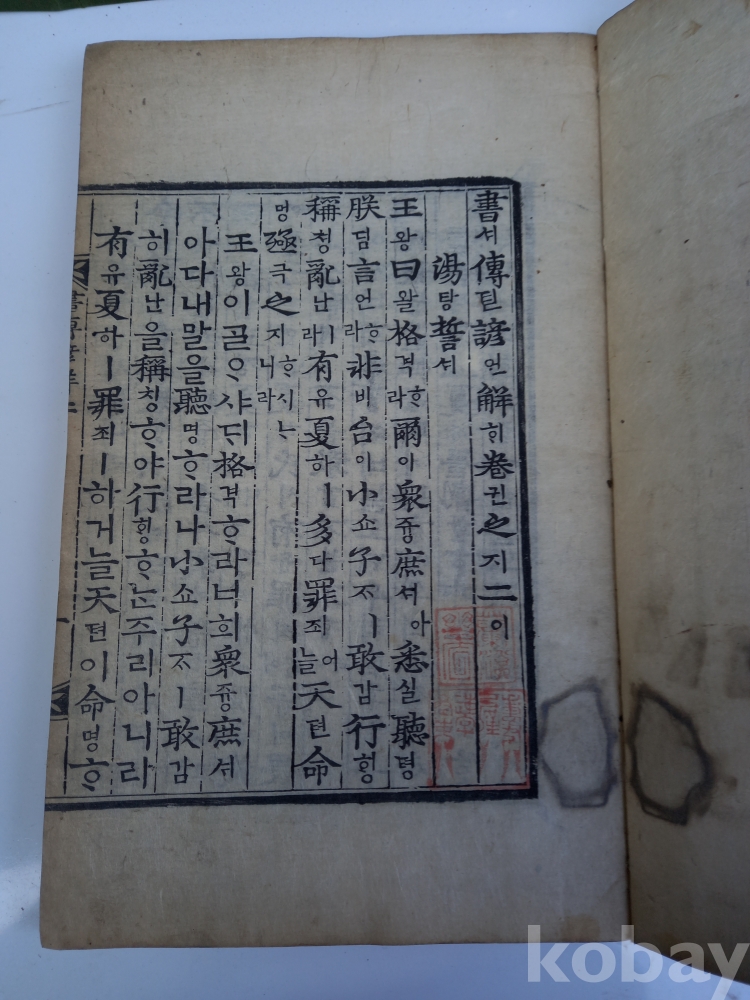 書셔傳뎐諺언解ᄒᆡ卷권之지二이
湯탕誓셔
王왕曰왈格격ᄒᆞ라爾이衆즁庶셔아悉실聽텽
朕딤言언ᄒᆞ라非비台이小쇼子ᄌᆞㅣ敢감行ᄒᆡᆼ
稱칭亂난이라有유夏하ㅣ多다罪죄어늘天텬命
명殛극之지ᄒᆞ시ᄂᆞ니라
王왕이ᄀᆞᆯᄋᆞ샤ᄃᆡ格격ᄒᆞ라너희衆즁庶셔
아다내말을聽텽ᄒᆞ라나小쇼子ᄌᆞㅣ敢감
히亂난을稱칭ᄒᆞ야行ᄒᆡᆼᄒᆞᄂᆞᆫ주리아니라
有유夏하ㅣ罪죄ㅣ하거늘天텬이命명ᄒᆞ
kobay